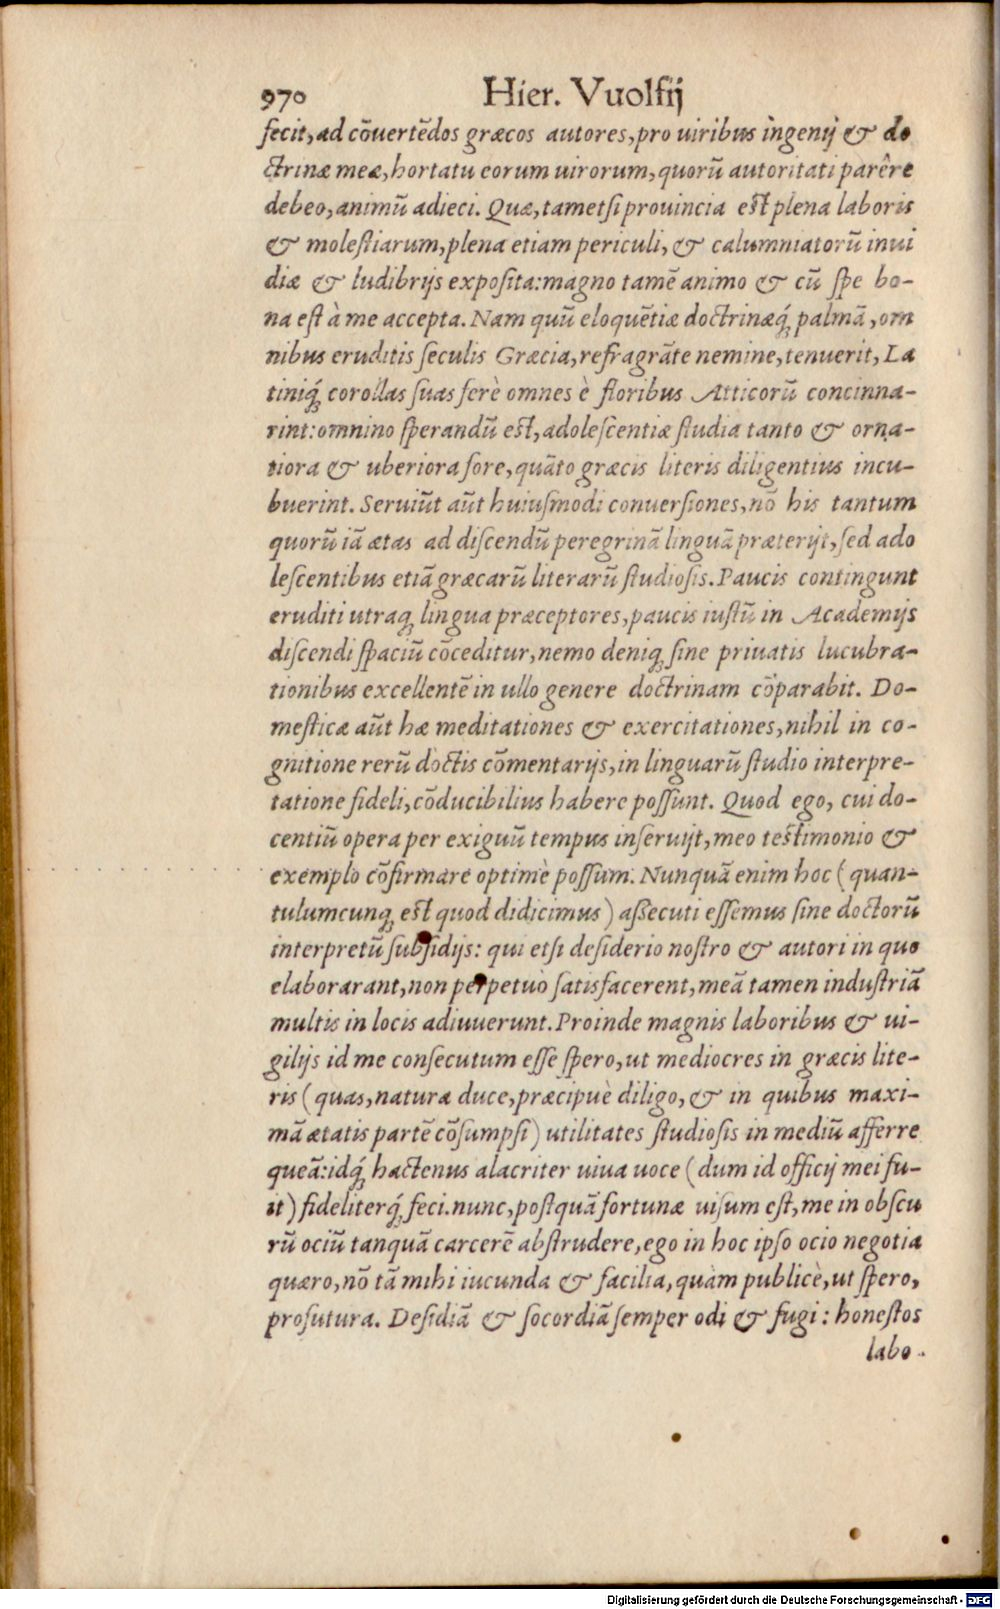 970 Hier. Vuolfij
fecit, ad cõuertẽdos græcos autores, pro uiribus ingenij & do
ctrinæ meæ, hortatu eorum uirorum, quorũ autoritati parêre
debeo, animũ adieci. Quæ, tametsi prouincia est plena laboris
& molestiarum, plena etiam periculi, & calumniatorũ inui
diæ & ludibrijs exposita: magno tamẽ animo & cũ spe bo-
na est à me accepta. Nam quũ eloquẽtiæ doctrinæq́; palmã, om
nibus eruditis seculis Græcia, refragrãte nemine, tenuerit, La
tiniq́; corollas suas ferè omnes è floribus Atticorũ concinna-
rint: omnino sperandũ est, adolescentiæ studia tanto & orna-
tiora & uberiora fore, quãto græcis literis diligentius incu-
buerint. Seruiũt aũt huiusmodi conuersiones, nõ his tantum
quorũ iã ætas ad discendũ peregrinã linguã præterijt, sed ado
lescentibus etiã græcarũ literarũ studiosis. Paucis contingunt
eruditi utraq; lingua præceptores, paucis iustũ in Academijs
discendi spaciũ cõceditur, nemo deniq; sine priuatis lucubra-
tionibus excellentẽ in ullo genere doctrinam cõparabit. Do-
mesticæ aũt hæ meditationes & exercitationes, nihil in co-
gnitione rerũ doctis cõmentarijs, in linguarũ studio interpre-
tatione fideli, cõducibilius habere possunt. Quod ego, cui do-
centiũ opera per exiguũ tempus inseruijt, meo testimonio &
exemplo cõfirmare optimè possum. Nunquã enim hoc (quan-
tulumcunq; est quod didicimus) assecuti essemus sine doctorũ
interpretũ subsidijs: qui etsi desiderio nostro & autori in quo
elaborarant, non perpetuò satisfacerent, meã tamen industriã
multis in locis adiuuerunt. Proinde magnis laboribus & ui-
gilijs id me consecutum esse spero, ut mediocres in græcis lite-
ris (quas, natura duce, præcipuè diligo, & in quibus maxi-
mã ætatis partẽ cõsumpsi) utilitates studiosis in mediũ afferre
queã: idq́; hactenus alacriter uiua uoce (dum id officij mei fu-
it) fideliterq́; feci. nunc, postquã fortunæ uisum est, me in obscu
rũ ociũ tanquã carcerẽ abstrudere, ego in hoc ipso ocio negotia
quæro, nõ tã mihi iucunda & facilia, quàm publicè, ut spero,
profutura. Desidiã & socordiã semper odi & fugi: honestos
labo-
Digitalisierung gefördert durch die Deutsche Forschungsgemeinschaft - DFG